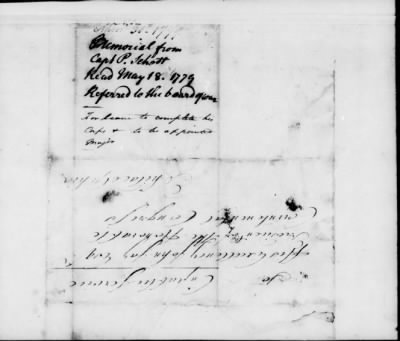 Memorial from
Capt P. Schott
Read May 18. 1779
Referred to the board of war
For leave to complete his
Corps & to be appointed
Major
To
His Excellency John Jay Esq
President of the Honorable
Continental Congress
Philadelphia